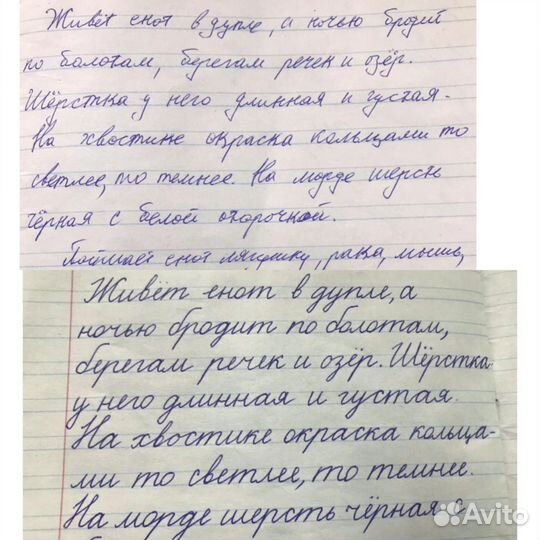 Живёт енот в дупле, а ночью бродит
по болотам, берегам речек и озёр.
Шёрстка у него длинная и густая.
На хвостике окраска кольцами то
светлее, то темнее. На морде шерсть
чёрная с белой оторочкой.
Поймает енот лягушку, рака, мышь,
Живёт енот в дупле, а
ночью бродит по болотам,
берегам речек и озёр. Шёрстка
у него длинная и густая.
На хвостике окраска кольца-
ми то светлее, то темнее.
На морде шерсть чёрная с
Avito